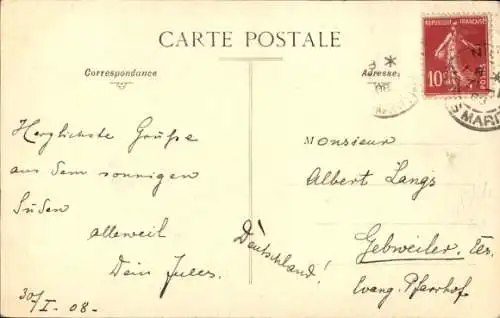 CARTE POSTALE
Correspondance
Adresse
REPUBLIQUE FRANÇAISE
10c
POSTES
Herzlichste Grüße
aus dem sonnigen
Süden
alleweil
Dein Jules.
30/I - 08.
Monsieur
Albert Lang
Gebweiler.
Evang. Pfarrhof
Deutschland!